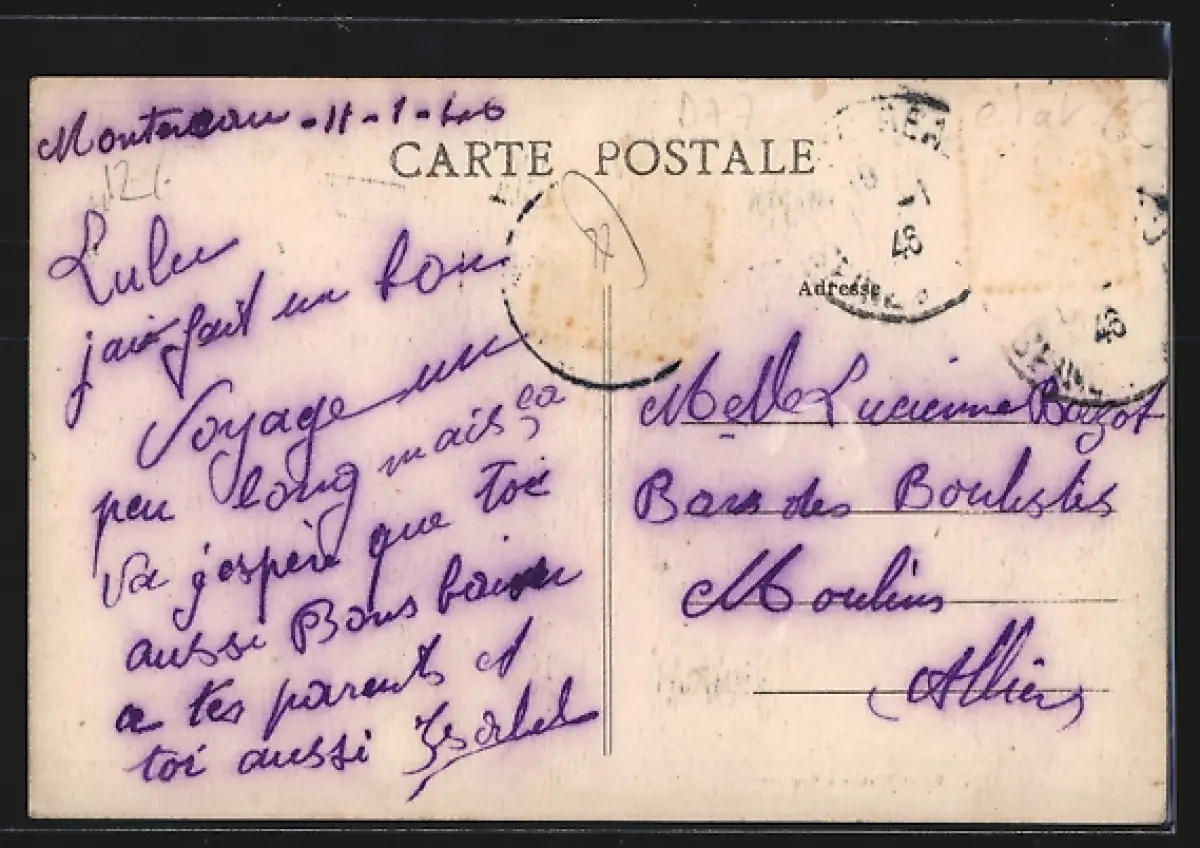 Montereau - 11-1-46
CARTE POSTALE
D77
121
Lulu
jais fait un bon
Voyage un
peu long mais ça
va j'espère que toi
aussi Bons baiser
a tes parents et
toi aussi Isabel
Adresse
48
48
Melle Lucienne Bazot
Bar des Boulistes
Moulins
(Allier)